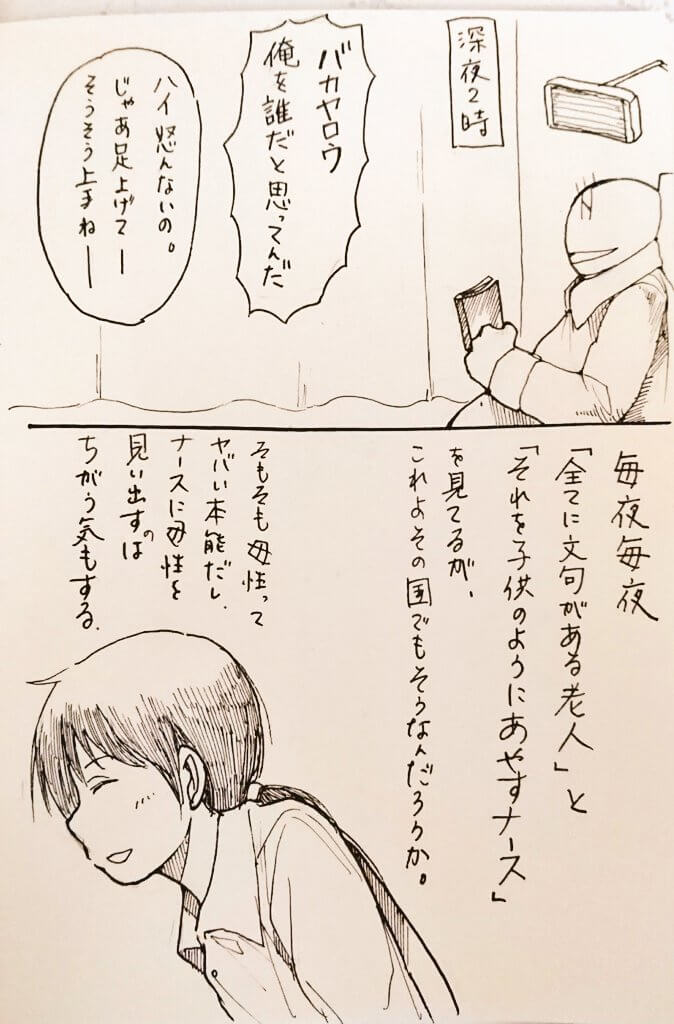 深夜2時
バカヤロウ
俺を誰だと思ってんだ
ハイ怒んないの。
じゃあ足上げてー
そうそう上手ねー
毎夜毎夜
「全てに文句がある老人」と
「それを子供のようにあやすナース」
を見てるが、
これよその国でもそうなんだろうか。
そもそも母性って
ヤバい本能だし、
ナースに母性を
見い出すのは
ちがう気もする。